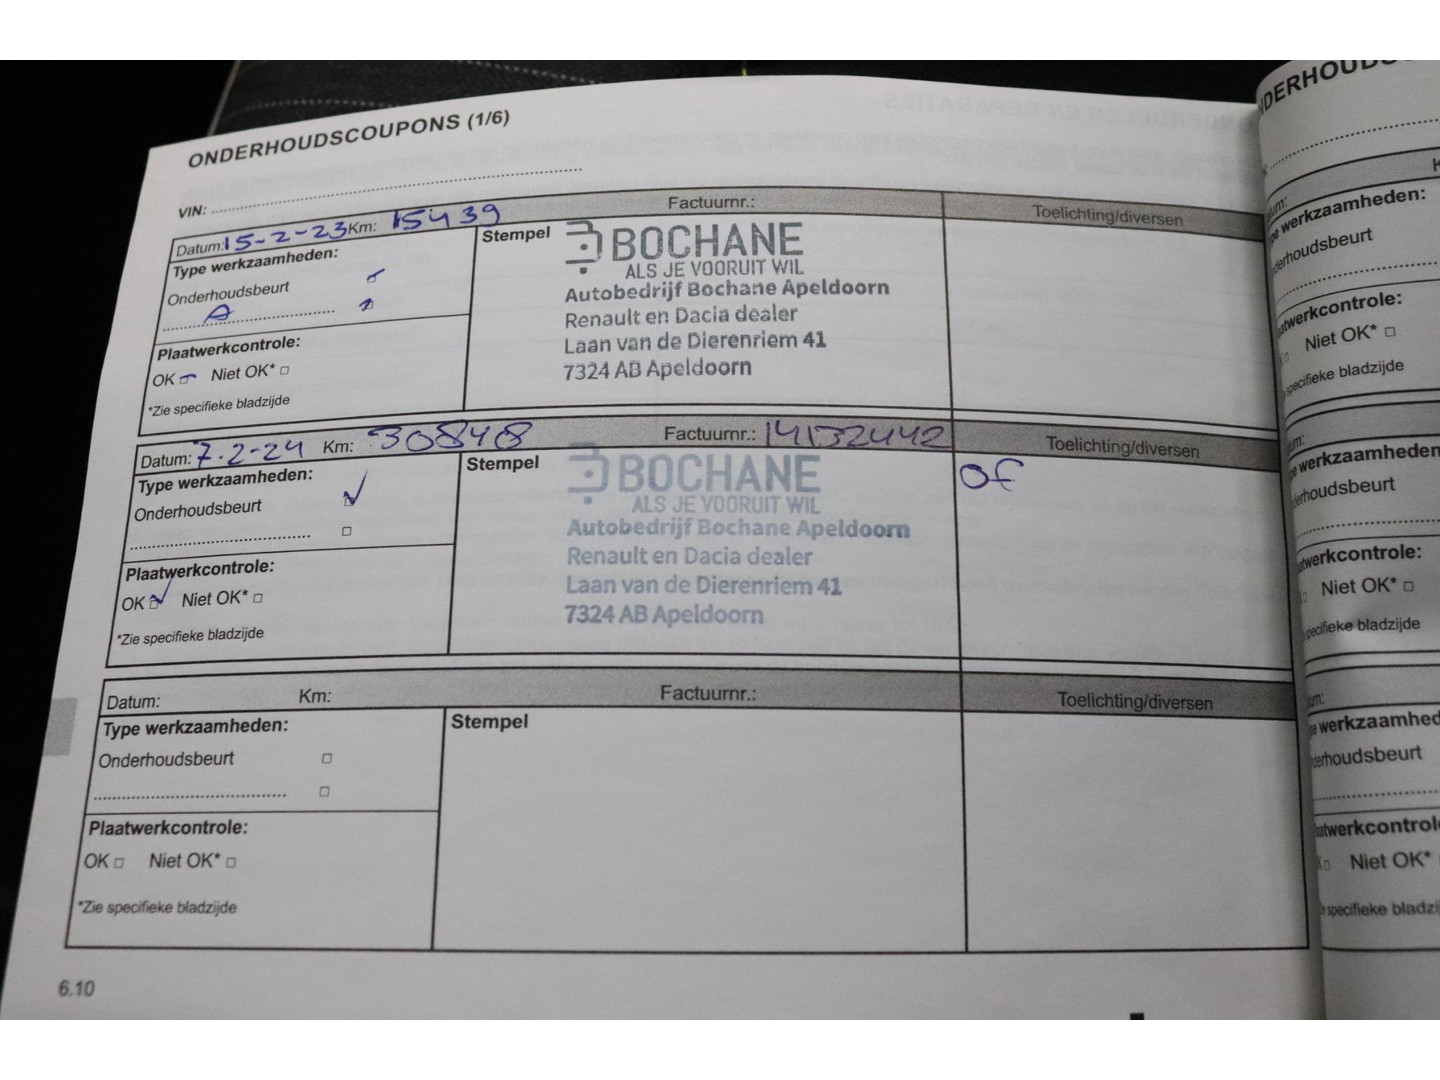 ONDERHOUDSCOUPONS (1/6)
VIN:
Datum: 15-2-23 Km: 15439 Factuurnr.: Toelichting/diversen
Type werkzaamheden:
Onderhoudsbeurt
A
Plaatwerkcontrole:
OK Niet OK*
*Zie specifieke bladzijde
Stempel
BOCHANE
ALS JE VOORUIT WIL
Autobedrijf Bochane Apeldoorn
Renault en Dacia dealer
Laan van de Dierenriem 41
7324 AB Apeldoorn
Datum: 7-2-24 Km: 30848 Factuurnr.: 14132442 Toelichting/diversen
Type werkzaamheden:
Onderhoudsbeurt
Plaatwerkcontrole:
OK Niet OK*
*Zie specifieke bladzijde
Stempel
BOCHANE
ALS JE VOORUIT WIL
Autobedrijf Bochane Apeldoorn
Renault en Dacia dealer
Laan van de Dierenriem 41
7324 AB Apeldoorn
Of
Datum: Km: Factuurnr.: Toelichting/diversen
Type werkzaamheden:
Onderhoudsbeurt
Plaatwerkcontrole:
OK Niet OK*
*Zie specifieke bladzijde
Stempel
6.10
werkzaamheden:
Niet OK*
bladzijde
Niet OK*
bladzijde
Niet OK*